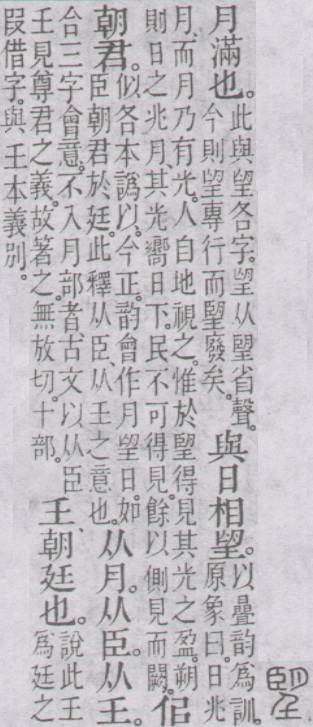 朢
月滿也。此與望各字。望从朢省聲。今則望專行而朢廢矣。與日相望。以疊韵爲訓。原象曰。日兆
月。而月乃有光。人自地視之。惟於望得見其光之盈。朔則日之兆月。其光嚮日下。民不可得見。餘以側見而闕。佀
朝君。似各本譌以。今正。韵會作月望日。如臣朝君於廷。此釋从臣从壬之意也。从月。从臣。从壬。
合三字會意。不入月部者。古文以从臣壬見尊君之義。故箸之。無放切。十部。壬、朝廷也。說此壬爲廷之
叚借字。與壬本義別。